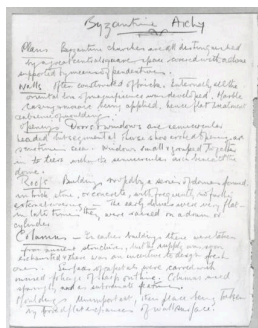 Byzantine Archy
Plans Byzantine churches are all distinguished
by a great central square space covered with a dome
supported by means of pendentives.
Walls Often constructed of brick. Internally all the
oriental love of magnificence was developed. Marble
casing & mosaic being applied, hence flat treatment
absence of mouldings
Openings Doors & windows are semicircular
headed tho segmental & horse shoe arched openings are
sometimes seen. Windows small & grouped together
in to tiers within the semicircular arch beneath the
dome.
Roofs Building roofed by a series of domes formed
in brick, stone, or concrete, with frequently no further
external covering. The early domes were very flat.
In later times they were raised on a drum or
cylinder
Columns In earlier buildings these were taken
from ancient structures, but the supply soon again
exhausted & there was an incentive to design fresh
ones. carved with
foliage of sharp outline. Columns used
sparingly, and as subordinate features
Mouldings Unimportant, their place being taken
by broad flat expanses of wall surface.